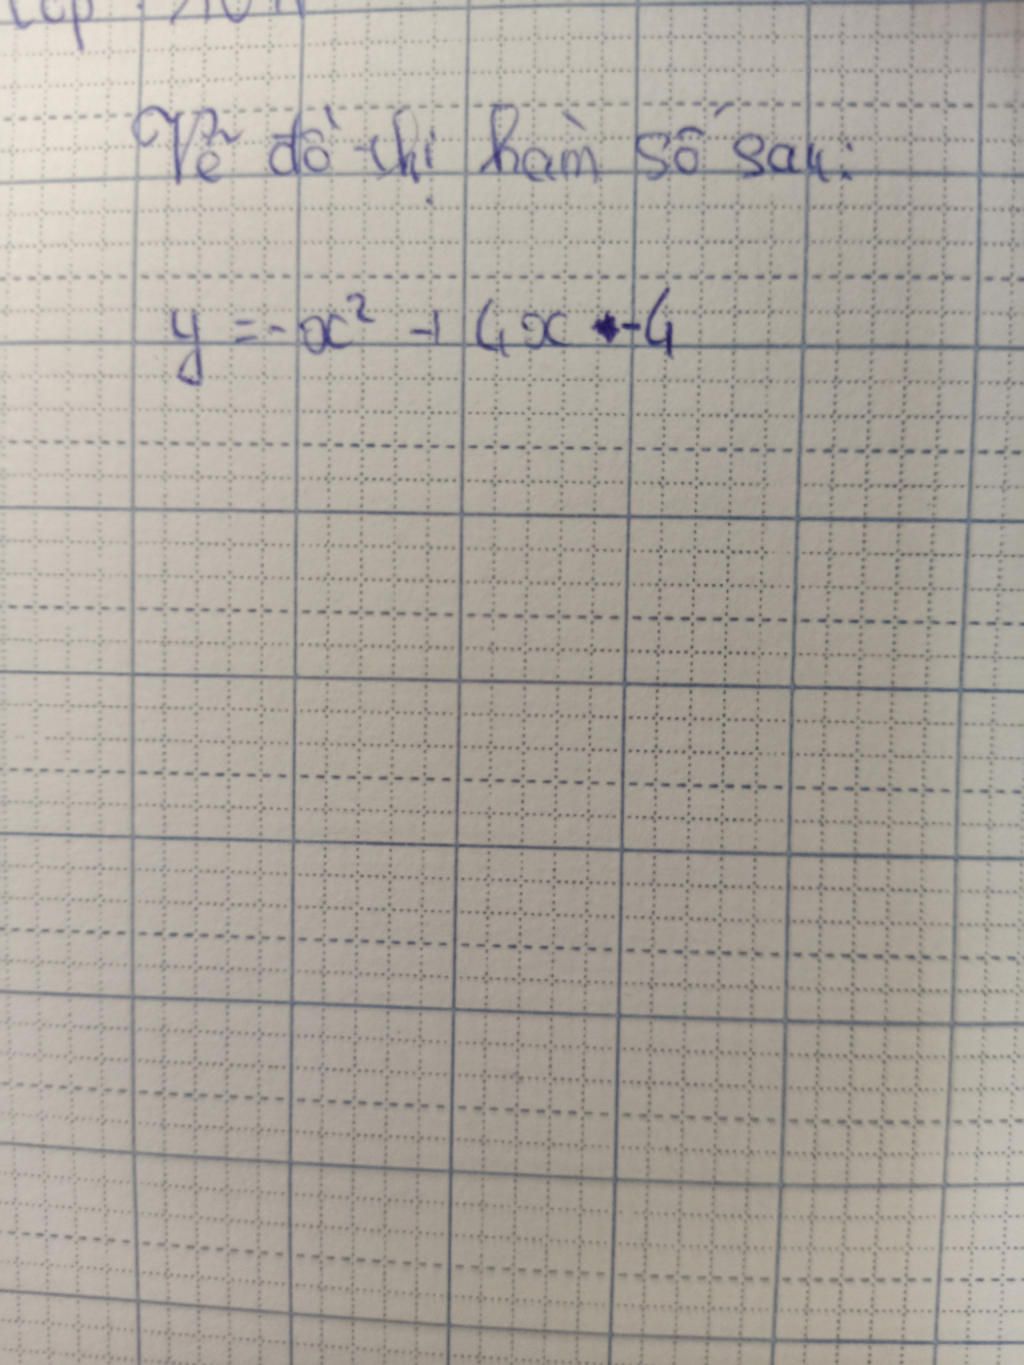 Vẽ đồ thị hàm số sau:
y = -x² + 4x - 4